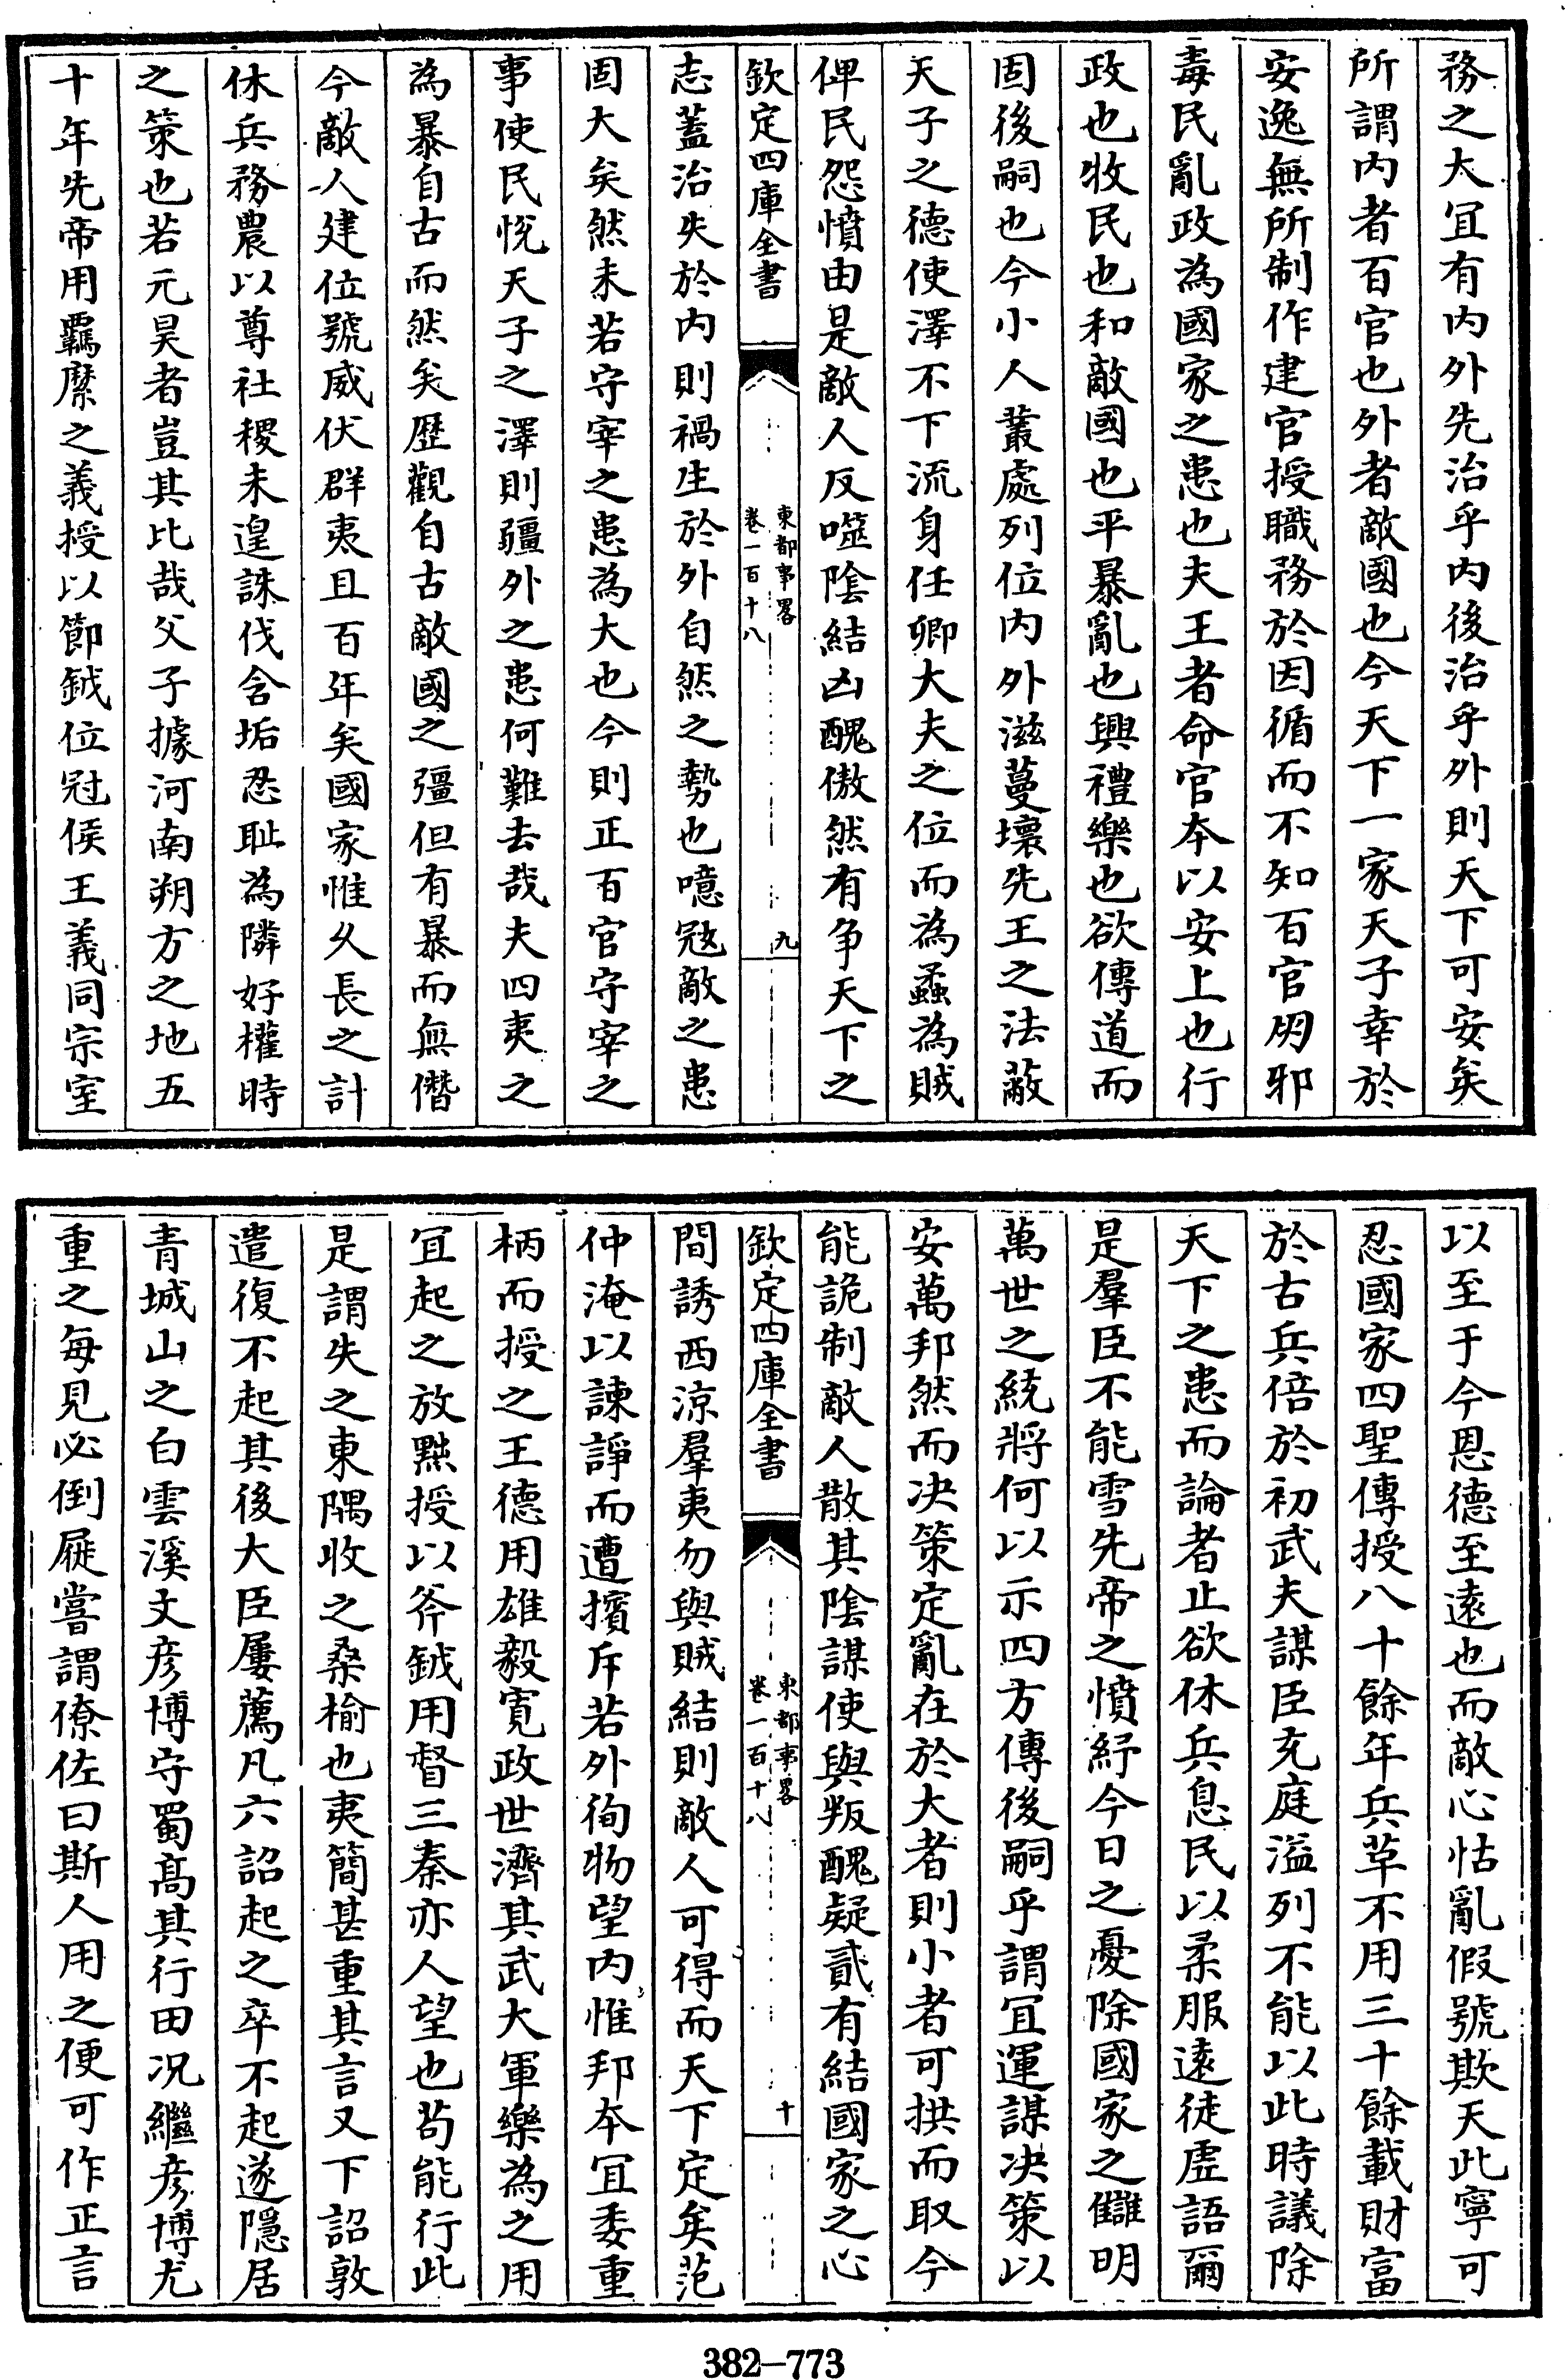 務之大宜有内外先治乎内後治乎外則天下可安矣
所謂内者百官也外者敵國也今天下一家天子幸於
安逸無所制作建官授職務於因循而不知百官朋邪
毒民亂政為國家之患也夫王者命官本以安上也行
政也牧民也和敵國也平暴亂也興禮樂也欲傳道而
固後嗣也今小人叢處列位内外滋蔓壞先王之法蔽
天子之德使澤不下流身任卿大夫之位而為蟊為賊
俾民怨憤由是敵人反噬陰結凶醜傲然有争天下之
欽定四庫全書
東都事畧
卷一百十八
九
志蓋治失於内則禍生於外自然之勢也噫冦敵之患
固大矣然未若守宰之患為大也今則正百官守宰之
事使民悦天子之澤則疆外之患何難去哉夫四夷之
為暴自古而然矣歴觀自古敵國之彊但有暴而無僭
今敵人建位號威伏群夷且百年矣國家惟久長之計
休兵務農以尊社稷未遑誅伐含垢忍耻為隣好權時
之策也若元昊者豈其比哉父子據河南朔方之地五
十年先帝用羈縻之義授以節鉞位冠侯王義同宗室
以至于今恩德至逺也而敵心怙亂假號欺天此寧可
忍國家四聖傳授八十餘年兵革不用三十餘載財富
於古兵倍於初武夫謀臣充庭溢列不能以此時議除
天下之患而論者止欲休兵息民以柔服逺徒虚語爾
是羣臣不能雪先帝之憤紓今日之憂除國家之讎明
萬世之統將何以示四方傳後嗣乎謂宜運謀决策以
安萬邦然而决策定亂在於大者則小者可拱而取今
能詭制敵人散其隂謀使與叛醜疑貳有結國家之心
欽定四庫全書
東都事畧
卷一百十八
十
間誘西涼羣夷勿與賊結則敵人可得而天下定矣范
仲淹以諫諍而遭擯斥若外徇物望内惟邦本宜委重
柄而授之王德用雄毅寛政世濟其武大軍樂為之用
宜起之放黜授以斧鉞用督三秦亦人望也苟能行此
是謂失之東隅收之桑榆也夷簡甚重其言又下詔敦
遣復不起其後大臣屢薦凡六詔起之卒不起遂隱居
青城山之白雲溪文彦博守蜀髙其行田况繼彦博尤
重之每見必倒屣嘗謂僚佐曰斯人用之便可作正言
382—773